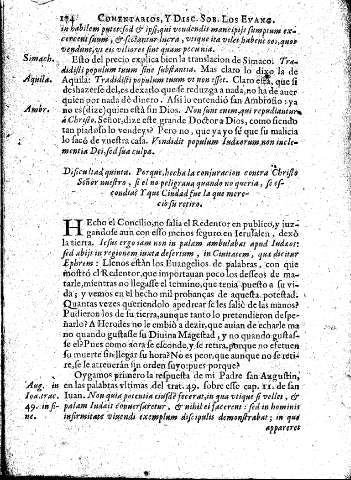 174 COMENTARIOS, Y DISC. SOB. LOS EVANG.
in habilem putet sed & ipsi, qui vendendis mancipijs sumptum ex-
ercent suum, & sectantur lucra, utique ita viles habent eos, quos
vendunt, ut eis viliores sint quam pecunia.
Simach. Esto del precio explica bien la translacion de Simaco: Tra-
didisti populum tuum sine substantia. Mas claro lo dixo la de
Aquila. Aquila: Tradidisti populum tuum ut non esset. Claro està, que si
deshazerse del, es dexarlo que se reduzga a nada, no ha de auer
quien por nada dè dinero. Assi lo entendiò san Ambrosio: ya
Ambr. no es (dize) quien està sin Dios. Non sunt enim, qui repudiantur
à Christo. Señor, dize este grande Doctor à Dios, como siendo
tan piadoso lo vendeys? Pero no, que ya yo sè que su malicia
lo sacò de vuestra casa. Vindidit populum Iudæorum non incle-
mentia Dei, sed sua culpa.
Discultad quinta. Porque, hecha la conjuracion contra Christo
Señor nuestro, si el no peligraua quando no queria, se es-
condias Y que Ciudad fue la que mere-
ciò su retiro.
HEcho el Concilio, no salia el Redentor en publico, y juz-
gandose aun con esso menos seguro en Ierusalen, dexò
la tierra. Iesus ergo iam non in palam ambulabat apud Iudæos:
sed abijt in regionem iuxta desertum, in Ciuitatem, quæ dicitur
Ephrem: Llenos estàn los Euangelios de palabras, con que
mostrò el Redentor, que importauan poco los desseos de ma-
tarle, mientras no llegasse el termino, que tenia puesto a su vi-
da; y vemos en el hecho mil probanças de aquesta potestad.
Quantas vezes queriendolo apedrear se les saliò de las manos?
Pudieron los de su tierra, aunque tanto lo pretendieron despe-
ñarlo? A Herodes no le embiò a dezir, que auian de echarle ma
no quando gustasse su Diuina Magestad, y no quando gustas-
se el? Pues como aora se esconde, y se retira, porque no efetuen
su muerte sin llegar su hora? No es peor, que aunque no se reti-
re, se le atreueràn sin orden suyo: pues porque?
Oygamos primero la respuesta de mi Padre san Augustin,
Aug. in en las palabras vltimas del trat. 49. sobre esse cap. 11. de san
Ioa. trac. Iuan. Non quia potentia eiusdē fecerat, in qua vtique si vellet, &
49. in fi- palam Iudæis conuersaretur, & nihil ei facerent: sed in hominis
ne. infirmitate viuendi exemplum discipulis demonstrabat; in quo
appareret